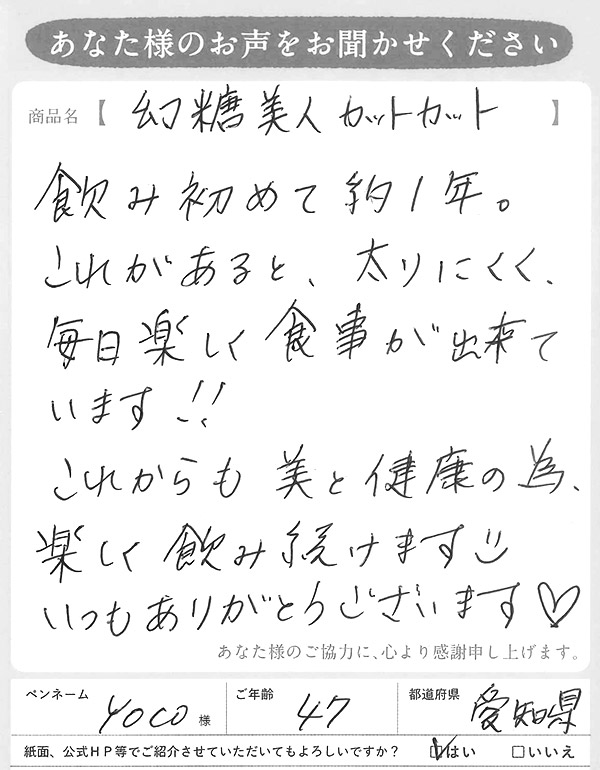 あなた様のお声をお聞かせください
商品名【 幻糖美人カットカット 】
飲み初めて約1年。
これがあると、太りにくく、
毎日楽しく食事が出来て
います!!
これからも美と健康の為、
楽しく飲み続けます
いつもありがとうございます♡
あなた様のご協力に、心より感謝申し上げます。
ペンネーム YOCO 様 ご年齢 47 都道府県 愛知県
紙面、公式HP等でご紹介させていただいてもよろしいですか? ☑はい □いいえ